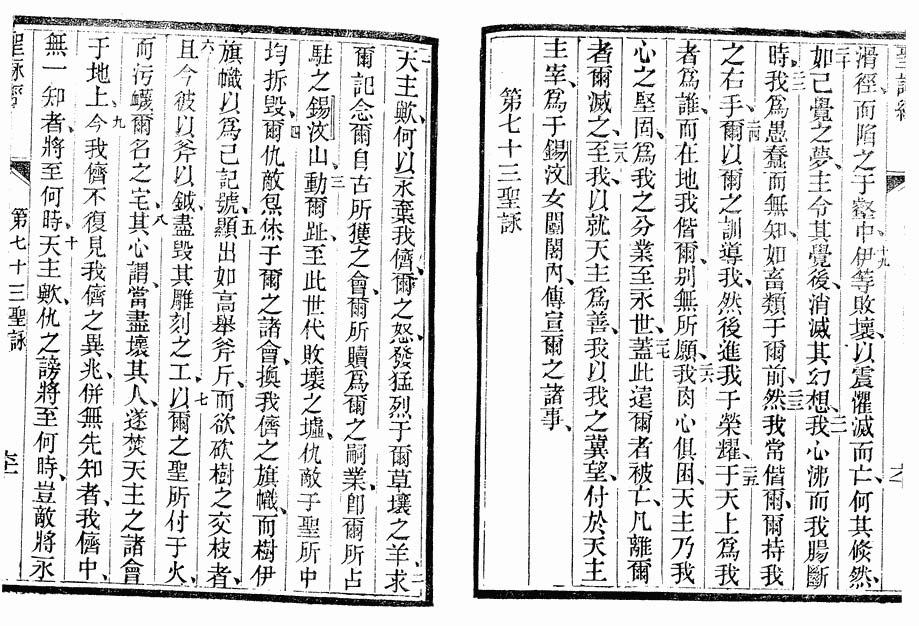 聖詠經
滑徑而陷之于壑中伊等敗壞以震懼滅而亡何其倐然
二十
十九
如己覺之夢主令其覺後消滅其幻想我心沸而我腸斷
二一
時我為愚蠢而無知如畜類于爾前然我常偕爾爾持我
二二
二三
之右手爾以爾之訓導我然後進我于榮耀于天上為我
二四
二五
者為誰而在地我偕爾别無所願我肉心俱困天主乃我
二六
心之堅固為我之分業至永世蓋此違爾者被亡凡離爾
二七
者爾滅之至我以就天主為善我以我之冀望付於天主
二八
主宰為于錫汶女闥閣內傳宣爾之諸事
第七十三聖詠
天主歟何以永棄我儕爾之怒發猛烈于爾草壤之羊求
一
二
爾記念爾自古所獲之會爾所贖為爾之嗣業即爾所占
駐之錫汶山動爾趾至此世代敗壞之墟仇敵于聖所中
三
均拆毀爾仇敵炰烋于爾之諸會換我儕之旗幟而樹伊
四
旗幟以為己記號顯出如高舉斧斤而欲砍樹之交枝者
五
且今彼以斧以鉞盡毀其雕刻之工以爾之聖所付于火
六
七
而污衊爾名之宅其心謂當盡壞其人遂焚天主之諸會
八
于地上今我儕不復見我儕之異兆併無先知者我儕中
九
無一知者將至何時天主歟仇之謗將至何時豈敵將永
十
聖詠經
第七十三聖詠